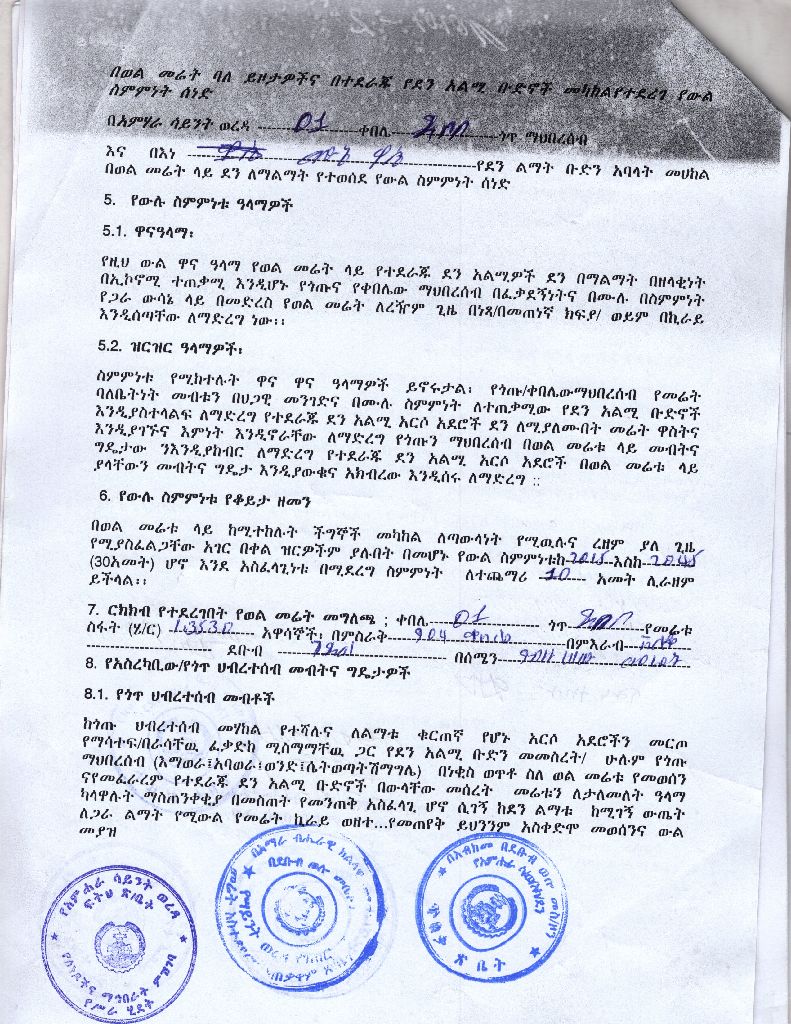 በወል መሬት ባለ ይዞታዎችና በተደራጁ የደን አልሚ ቡድኖች መካከልየተደረገ የውል
ስምምነት ሰነድ
በአምሃራ ሳይንት ወረዳ 01 ቀበሌ ጎጥ ማህበረሰብ
እና በእነ የደን ልማት ቡድን አባላት መሀከል
በወል መሬት ላይ ደን ለማልማት የተወሰደ የውል ስምምነት ሰነድ
5. የውሉ ስምምነቱ ዓላማዎች
5.1. ዋናዓላማ፡
የዚህ ውል ዋና ዓላማ የወል መሬት ላይ የተደራጁ ደን አልሚዎች ደን በማልማት በዘላቂነት
በኢኮኖሚ ተጠቃሚ እንዲሆኑ የጎጡና የቀበሌው ማህበረሰብ በፈቃደኝነትና በሙሉ በስምምነት
የጋራ ውሳኔ ላይ በመድረስ የወል መሬት ለረዥም ጊዜ በነጻ/በመጠነኛ ክፍያ/ ወይም በኪራይ
እንዲሰጣቸው ለማድረግ ነው፡፡
5.2. ዝርዝር ዓላማዎች፡
ስምምነቱ የሚከተሉት ዋና ዋና ዓላማዎች ይኖሩታል፡ የጎጡ/ቀበሌውማህበረሰብ የመሬት
ባለቤትነት መብቱን በህጋዊ መንገድና በሙሉ ስምምነት ለተጠቃሚው የደን አልሚ ቡድኖች
እንዲያስተላልፍ ለማድረግ የተደራጁ ደን አልሚ አርሶ አደሮች ደን ለሚያለሙበት መሬት ዋስትና
እንዲያገኙና እምነት እንዲኖራቸው ለማድረግ የጎጡን ማህበረሰብ በወል መሬቱ ላይ መብትና
ግዴታው ንእንዲያከብር ለማድረግ የተደራጁ ደን አልሚ አርሶ አደሮች በወል መሬቱ ላይ
ያላቸውን መብትና ግዴታ እንዲያውቁና አክብረው እንዲሰሩ ለማድረግ ፡፡
6. የውሉ ስምምነቱ የቆይታ ዘመን
በወል መሬቱ ላይ ከሚተከሉት ችግኞች መካከል ለጣውላነት የሚዉሉና ረዘም ያለ ጊዜ
የሚያስፈልጋቸው አገር በቀል ዝርዎችም ያሉበት በመሆኑ የውል ስምምነቱከ 2015 እስከ 2045
(30አመት) ሆኖ እንደ አስፈላጊነቱ በሚደረግ ስምምነት ለተጨማሪ 10 አመት ሊራዘም
ይችላል፡፡
7. ርክክብ የተደረገበት የወል መሬት መግለጫ ; ቀበሌ 01 ጎጥ የመሬቱ
ስፋት (ሄ/ር) 1.3530 አዋሳኞች፡ በምስራቅ በምእራብ
ደቡብ በሰሜን
8. የአስረካቢው/የጎጥ ህብረተሰብ መብትና ግዴታዎች
8.1. የጎጥ ህብረተሰብ መብቶች
ከጎጡ ህብረተሰብ መሃከል የተሻሉና ለልማቱ ቁርጠኛ የሆኑ አርሶ አደሮችን መርጦ
የማሳተፍ/በራሳቸዉ ፈቃድከ ሚስማማቸዉ ጋር የደን አልሚ ቡድን መመስረት/ ሁሉም የጎጡ
ማህበረሰብ (እማወራ፤አባወራ፤ወንድ፤ሴትወጣትሽማግሌ) በነቂስ ወጥቶ ስለ ወል መሬቱ የመወሰን
ናየመፈራረም የተደራጁ ደን አልሚ ቡድኖች በውላቸው መሰረት መሬቱን ለታለመለት ዓላማ
ካላዋሉት ማስጠንቀቂያ በመስጠት የመንጠቅ አስፈላጊ ሆኖ ሲገኝ ከደን ልማቱ ከሚገኝ ውጤት
ለጋራ ልማት የሚውል የመሬት ኪራይ ወዘተ...የመጠየቅ ይህንንም አስቀድሞ መወሰንና ውል
መያዝ
የአምሐራ ሳይንት ወረዳ
ፍትህ ጽ/ቤት
የሥራ ሂደት
ጽ ቤት